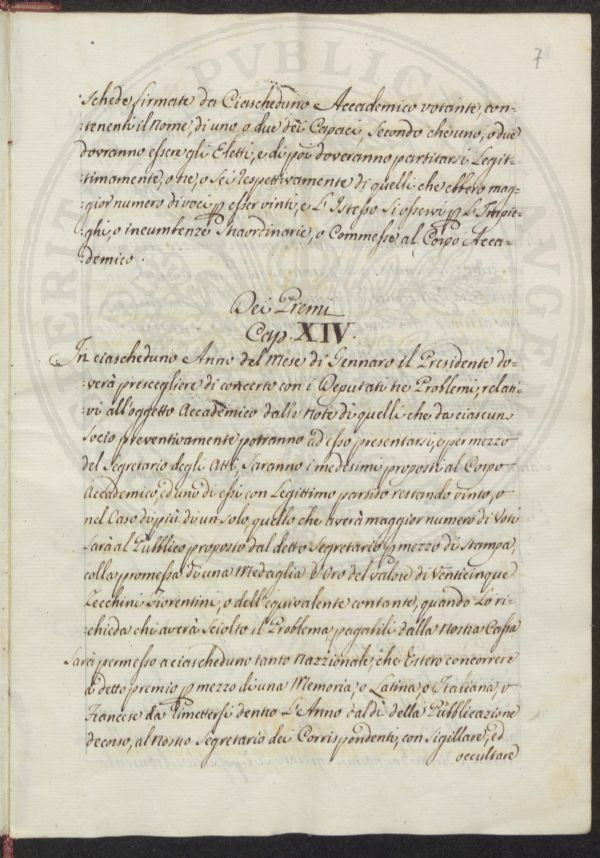 7
:schede firmate da Ciascheduno Accademico votante, con-
:tenenti il nome, di uno, o due dei Capaci, secondo che uno, o due
dovranno essere gli Eletti, e di poi doveranno partitarsi Legit-
:timamente, o tre, o sei respettivamente di quelli che ebbero mag-
:gior numero di voci p esser vinti, e L'Istesso si osservi p L'Impie-
:ghi, o incumbenze Straordinarie, o Commesse al Corpo Acca-
:demico.
Dei Premi
Cap. XIV.
In ciascheduno Anno del Mese di Gennaro il Presidente do-
:verà prescegliere di concerto con i Deputati tre Problemi, relati-
:vi all'oggetto Accademico dalle Note di quelli che da ciascun
Socio preventivamente potranno ad esso presentarsi, e per mezzo
del Segretario degli Atti, saranno i medesimi proposti al Corpo
Accademico, ed uno di essi con Legittimo partito restando vinto, o
nel Caso di più di un solo, quello che averà maggior numero di Voti
sarà al Pubblico proposto dal detto Segretario p mezzo di Stampa,
colla promessa di una Medaglia d'Oro del valore di Venticinque
Zecchini Fiorentini, o dell'equivalente contante, quando Lo ri-
:chieda chi averà sciolto il Problema, pagabili dalla Nostra Cassa
Sarà permesso a ciascheduno tanto Nazzionale, che Estero concorrere
a detto premio p mezzo di una Memoria, o Latina, o Italiana, o
Francese da Rimettersi dentro L'Anno dal dì della Pubblicazione
decorso, al Nostro Segretario dei Corrispondenti, con sigillare, ed
occultare